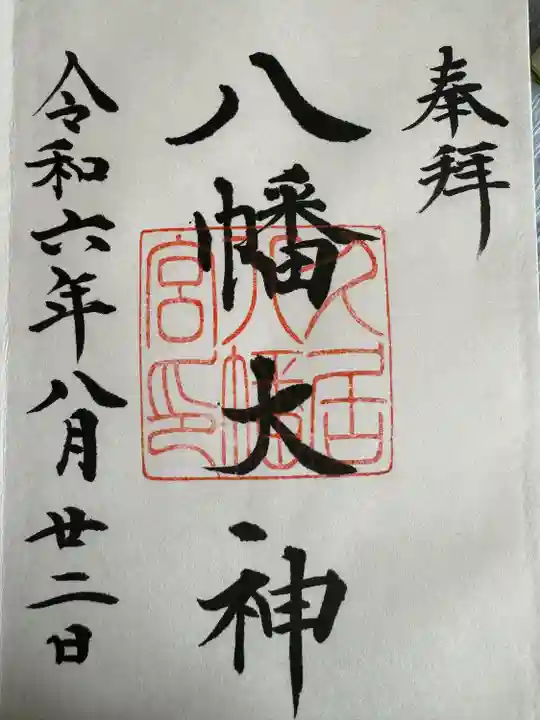 奉拝
八幡大神
久居八幡宮印
令和六年八月廿二日